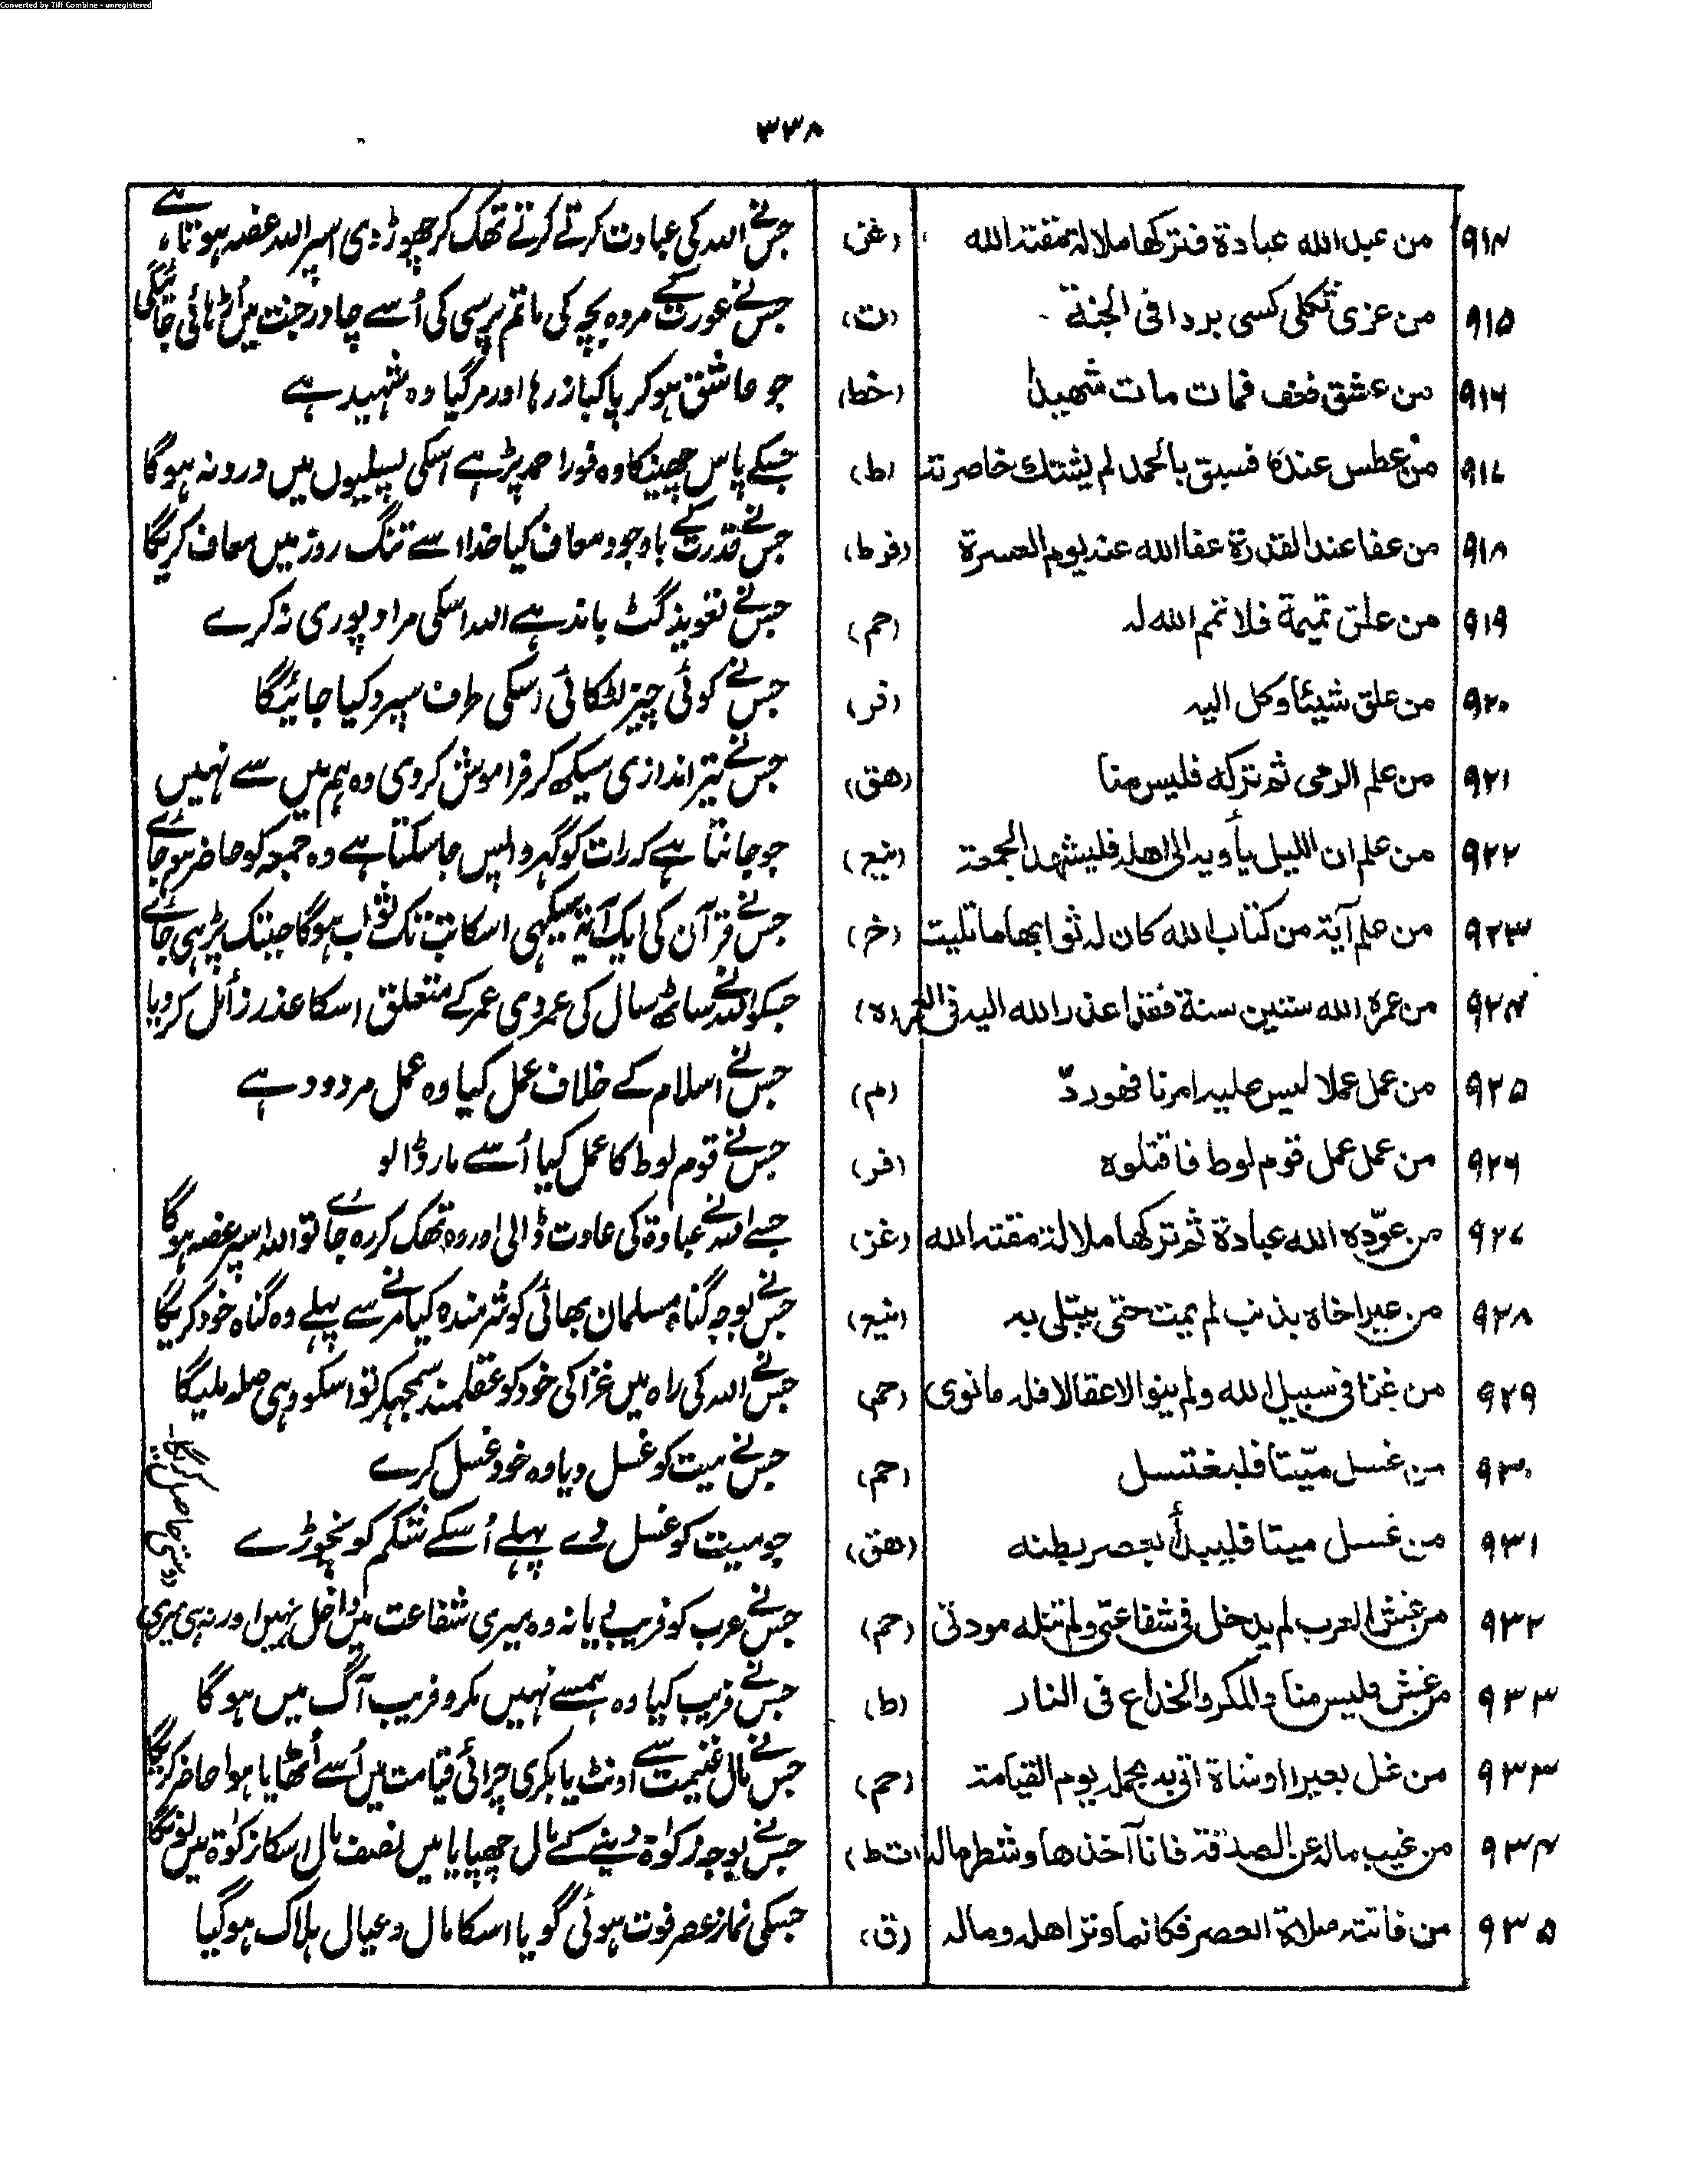 Converted by Tiff Combine - unregistered
۳۳۸
۹۱۴ من عبد الله عبادة فتركها ملالة مقته الله (غز) جس نے اللہ کی عبادت کرتے کرتے تھک کر چھوڑ دی اسپر اللہ غصہ ہوتا ہے
۹۱۵ من عزى ثكلى كسى بردا فى الجنة (ت) جس نے عورت کے مردہ بچہ کی ماتم پرسی کی اُسے چادر جنت میں اُڑہائی جائیگی
۹۱۶ من عشق فعف فمات مات شهيدا (خط) جو عاشق ہو کر پاکباز رہا اور مر گیا وہ شہید ہے
۹۱۷ من عطس عنده فسبق بالحمد لم يشتك خاصرته (ط) جسکے پاس چھینکا وہ فورا حمد پڑہے اسکی پسلیوں میں درد نہ ہوگا
۹۱۸ من عفا عند القدرة عفا الله عند يوم العسرة (فرط) جس نے قدرت کے باوجود معاف کیا خدا اسے تنگ روز میں معاف کریگا
۹۱۹ من علق تميمة فلا تمم الله له (حم) جس نے تعویذ گٹ باندہے اللہ اسکی مراد پوری نہ کرے
۹۲۰ من علق شيئا وكل اليه (فر) جس نے کوئی چیز لٹکائی اسکی طرف سپرد کیا جائیگا
۹۲۱ من علم الرمى ثم تركه فليس منا (هق) جس نے تیر اندازی سیکھ کر فراموش کر دی وہ ہم میں سے نہیں
۹۲۲ من علم ان الليل يأويه الى اهله فليشهد الجمعة جو جانتا ہے کہ رات کو گہر واپس جا سکتا ہے وہ جمعہ کو حاضر ہو جائے
۹۲۳ من علم آية من كتاب الله كان له ثوابها ما تليت (خر) جس نے قرآن کی ایک آیۃ سیکہی اسکا تب تک ثواب ہوگا جبتک پڑہی جائے
۹۲۴ من عمره الله ستين سنة فقد اعذر الله اليه فى العمر (ہ) جسکو اللہ نے ساٹھ سال کی عمر دی عمر کے متعلق اسکا عذر زائل کر دیا
۹۲۵ من عمل عملا ليس عليه امرنا فهو ردّ (م) جس نے اسلام کے خلاف عمل کیا وہ عمل مردود ہے
۹۲۶ من عمل عمل قوم لوط فاقتلوه (فر) جس نے قوم لوط کا عمل کیا اُسے مار ڈالو
۹۲۷ من عوّده الله عبادة ثم تركها ملالة مقته الله (غز) جسے اللہ نے عبادۃ کی عادت ڈالی اور وہ تھک کر رہ جائے تو اللہ اسپر غصہ ہوگا
۹۲۸ من عير اخاه بذنب لم يمت حتى يبتلى به جس نے بوجہ گناہ مسلمان بھائی کو شرمندہ کیا مرنے سے پہلے وہ گناہ خود کریگا
۹۲۹ من غزا فى سبيل الله ولم ينو الا عقالا فله ما نوى (حم) جس نے اللہ کی راہ میں غزا کی خود کو عقلمند سمجہکر تو اسکو وہی صلہ ملیگا
۹۳۰ من غسل ميّتا فليغتسل (حم) جس نے میت کو غسل دیا وہ خود غسل کرے
۹۳۱ من غسل ميتا فليبدأ بعصر بطنه (هق) جو میت کو غسل دے پہلے اُسکے شکم کو نچوڑے
۹۳۲ من غش العرب لم يدخل فى شفاعتى ولم تنله مودتى (حم) جس نے عرب کو فریب دیا نہ وہ میری شفاعت میں داخل نہیں اور نہ ہی میری
دوستی حاصل کریگا۔
۹۳۳ من غش فليس منا والمكر والخداع فى النار (ط) جس نے فریب کیا وہ ہمسے نہیں مکر و فریب آگ میں ہوگا
۹۳۳ من غل بعيرا او شاة اتى به يحمله يوم القيامة (حم) جس نے مال غنیمت سے اونٹ یا بکری چرائی قیامت میں اُسے اُٹھایا ہوا حاضر کریگا
۹۳۴ من غيب ماله عن الصدقة فانا آخذها وشطر ماله (ت ط) جس نے بوجہ زکوٰۃ دینے کے مال چھپایا میں نصف مال اسکا زکوٰۃ میں لونگا
۹۳۵ من فاتته صلاة العصر فكانما وتر اهله وماله (ق) جسکی نماز عصر فوت ہوئی گویا اسکا مال و عیال ہلاک ہوگیا